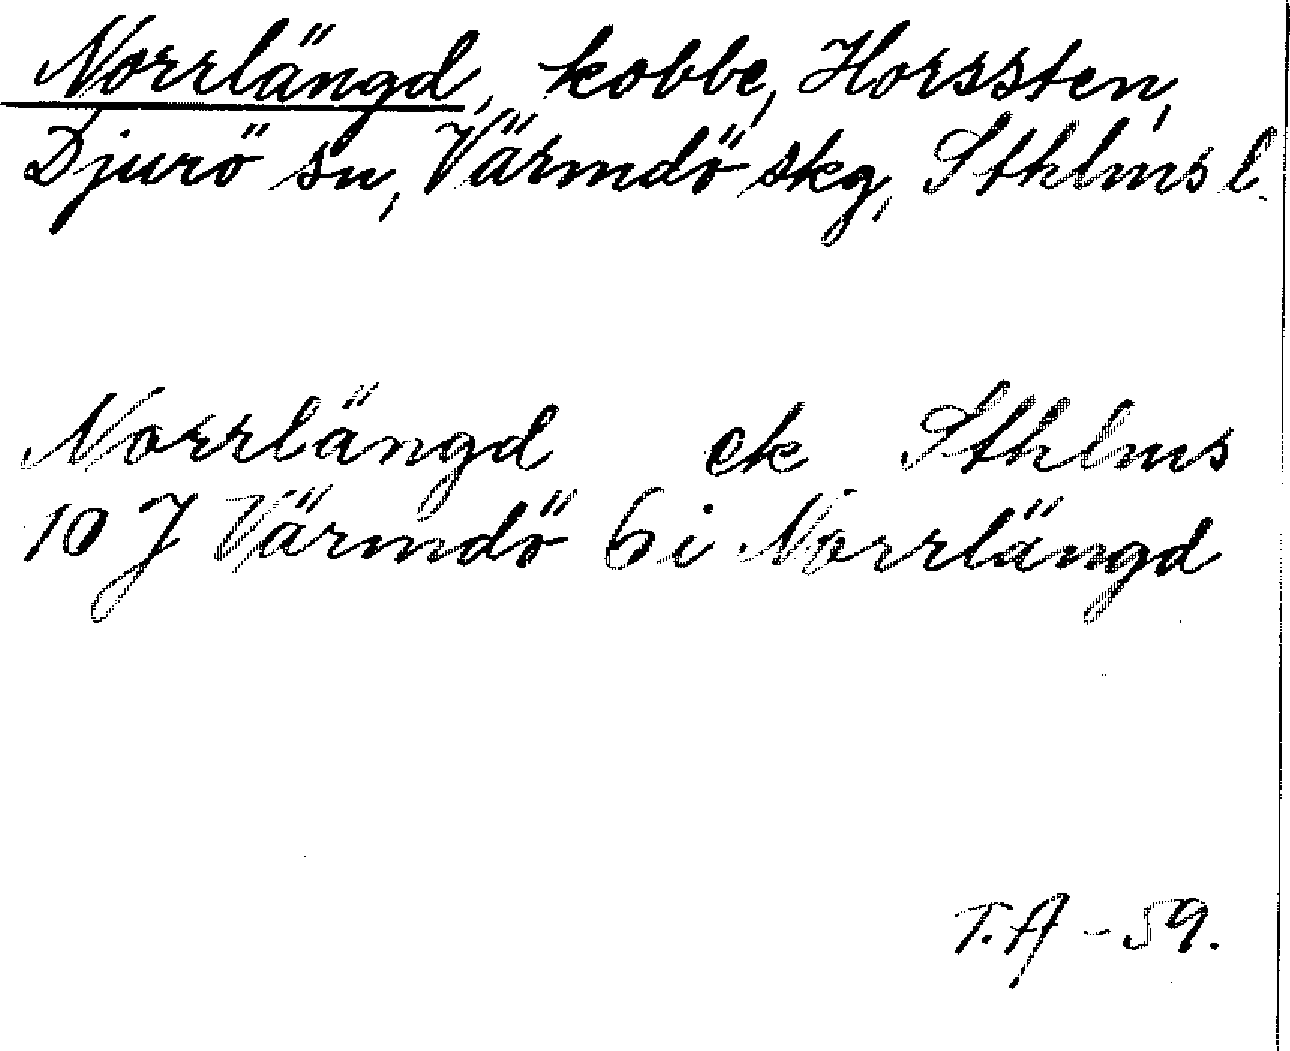 Norrlängd, kobbe, Horssten,
Djurö sn, Värmdö skg, Sthlms l.
Norrlängd ek Sthlms
10 J Värmdö 6 i Norrlängd
T.A - 59.